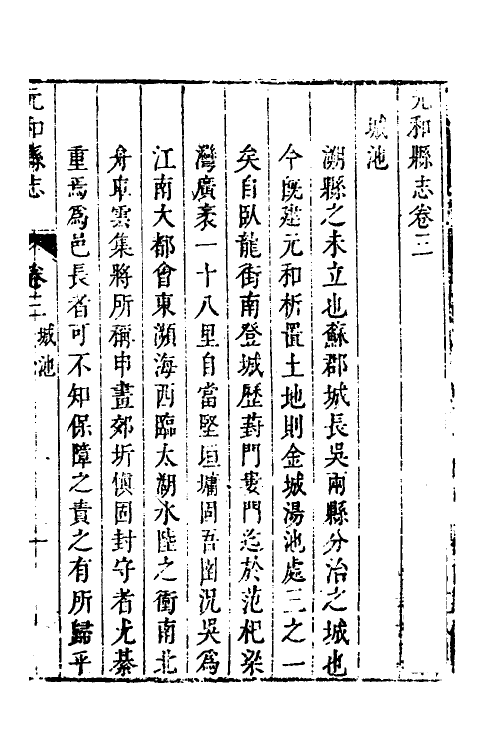 元和縣志卷三
城池
溯縣之未立也蘇郡城長吳兩縣分治之城也
今旣建元和析置土地則金城湯池處三之一
矣自臥龍街南登城歷葑門婁門迄於范杞梁
灣廣袤一十八里自當堅垣墉固吾圉況吳爲
江南大都會東瀕海西臨太湖水陸之衝南北
舟車雲集將所稱申畫郊圻愼固封守者尤綦
重焉爲邑長者可不知保障之責之有所歸乎
元和縣志
卷三 城池